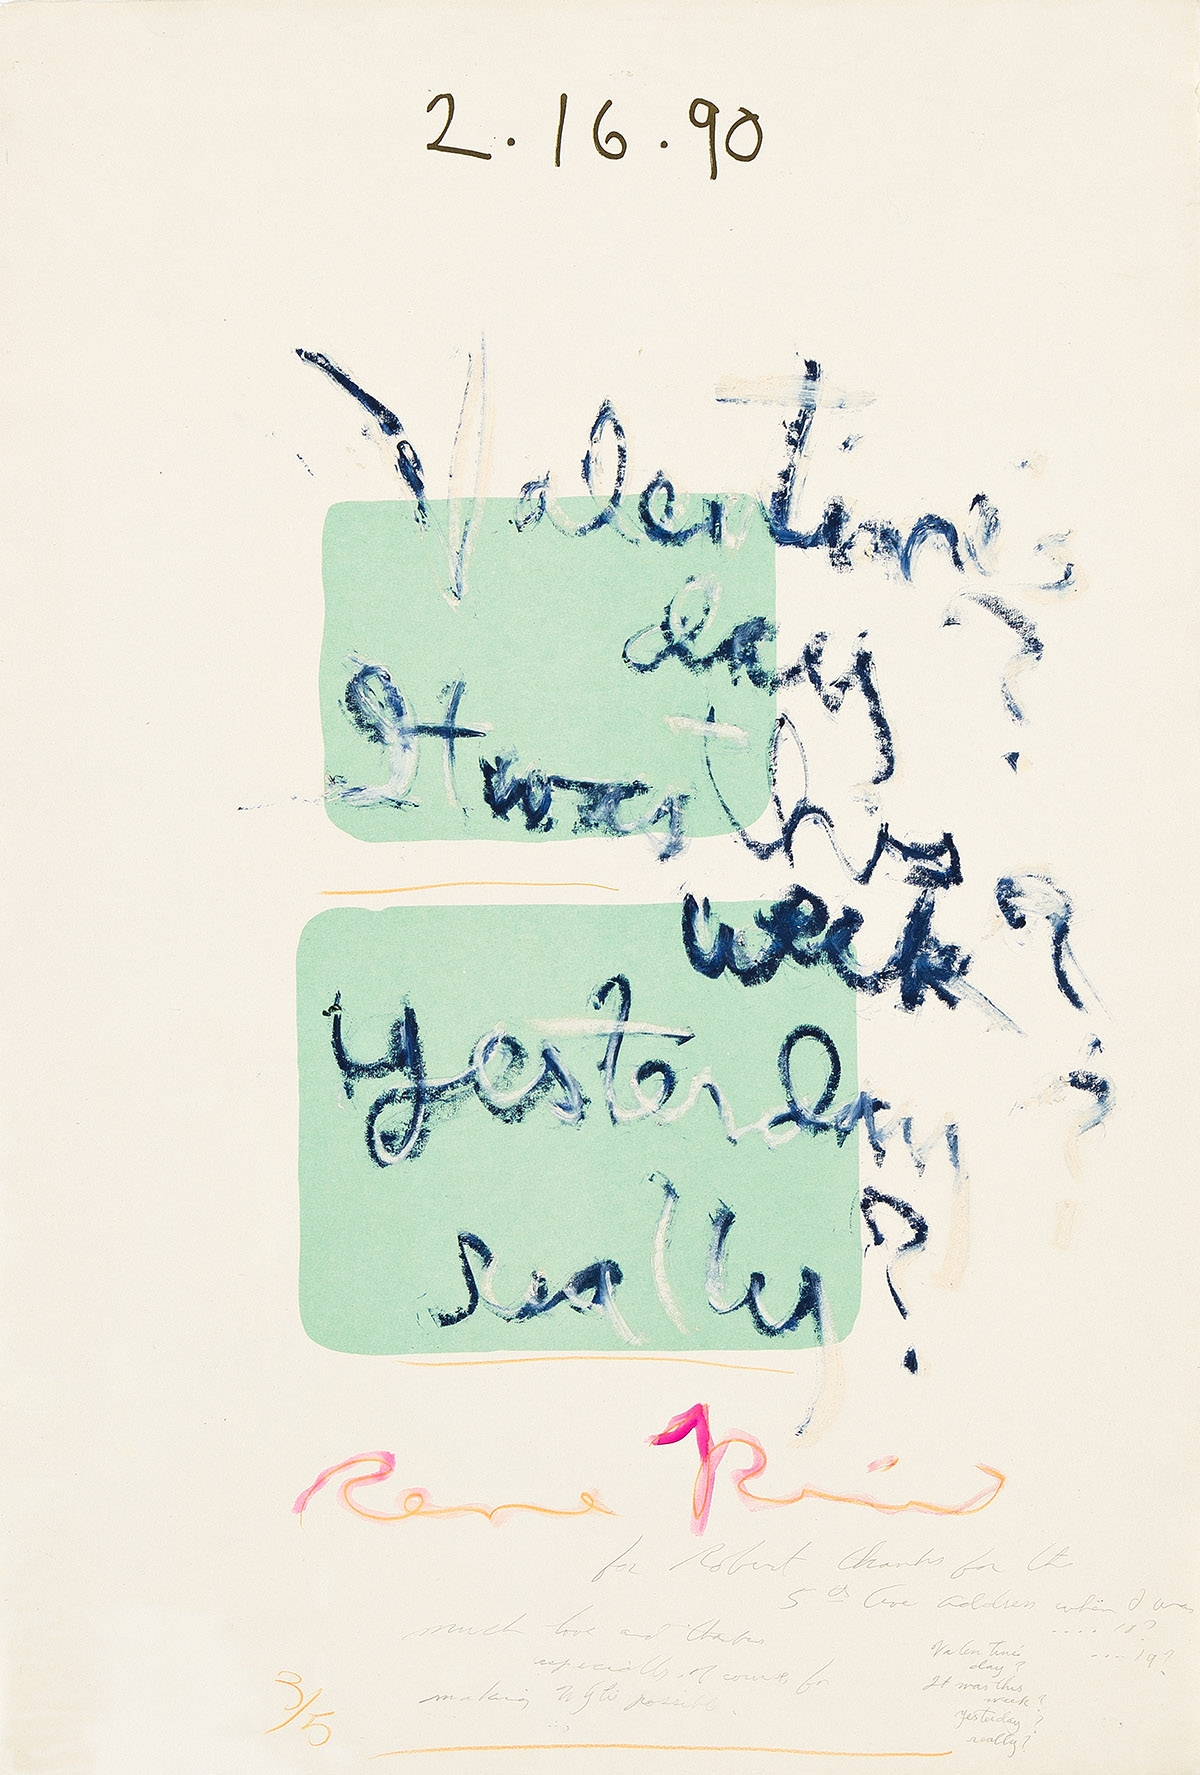 2.16.90
Valentine's
day?
It was this
week?
yesterday?
really?
Rene Ricard
for Robert thanks for the
5th Ave address when I was
.... 18?
... 19?
much love and thanks
especially of course for
making possible.
Valentine's
day?
It was this
week?
yesterday?
really?
3/5